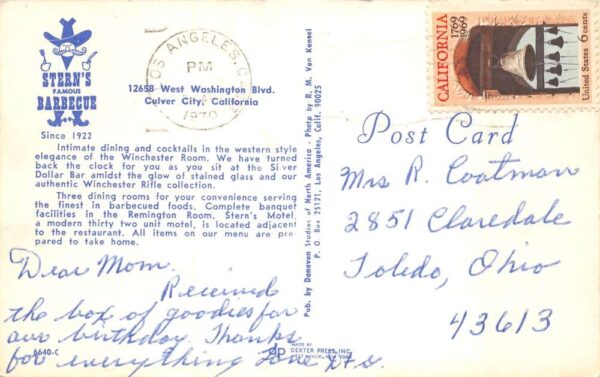 STERN'S
FAMOUS
BARBECUE
Since 1922
12658 West Washington Blvd.
Culver City, California
Intimate dining and cocktails in the western style
elegance of the Winchester Room. We have turned
back the clock for you as you sit at the Silver
Dollar Bar amidst the glow of stained glass and our
authentic Winchester Rifle collection.
Three dining rooms for your convenience serving
the finest in barbecued foods. Complete banquet
facilities in the Remington Room. Stern's Motel,
a modern thirty two unit motel, is located adjacent
to the restaurant. All items on our menu are pre-
pared to take home.
Dear Mom.
Received
the box of goodies for
our birthday. Thanks
for everything Love
6640-C
Pub. by Donevon Studios of North America - Photo by R. M. Van Kessel
P. O. Box 25121, Los Angeles, Calif. 90025
MADE BY
DEXTER PRESS, INC.
WEST NYACK, NEW YORK
dp
OS ANGELES, C
PM
1970
CALIFORNIA
1769
1969
United States 6 cents
Post Card
Mrs R. Coatman
2851 Claredale
Toledo, Ohio
43613